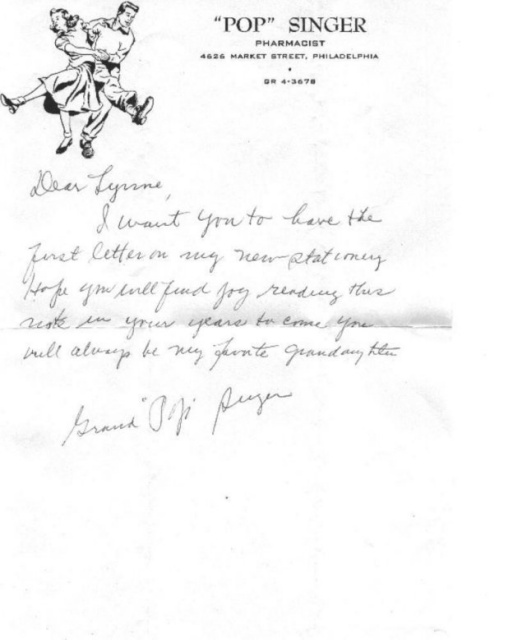 "POP" SINGER
PHARMACIST
4626 MARKET STREET, PHILADELPHIA
•
GR 4-3678
Dear Lynne,
I want you to have the
first letter on my new stationery
Hope you will find joy reading this
note in your years to come you
will always be my favorite grandaughter
Grand "Pop" Singer